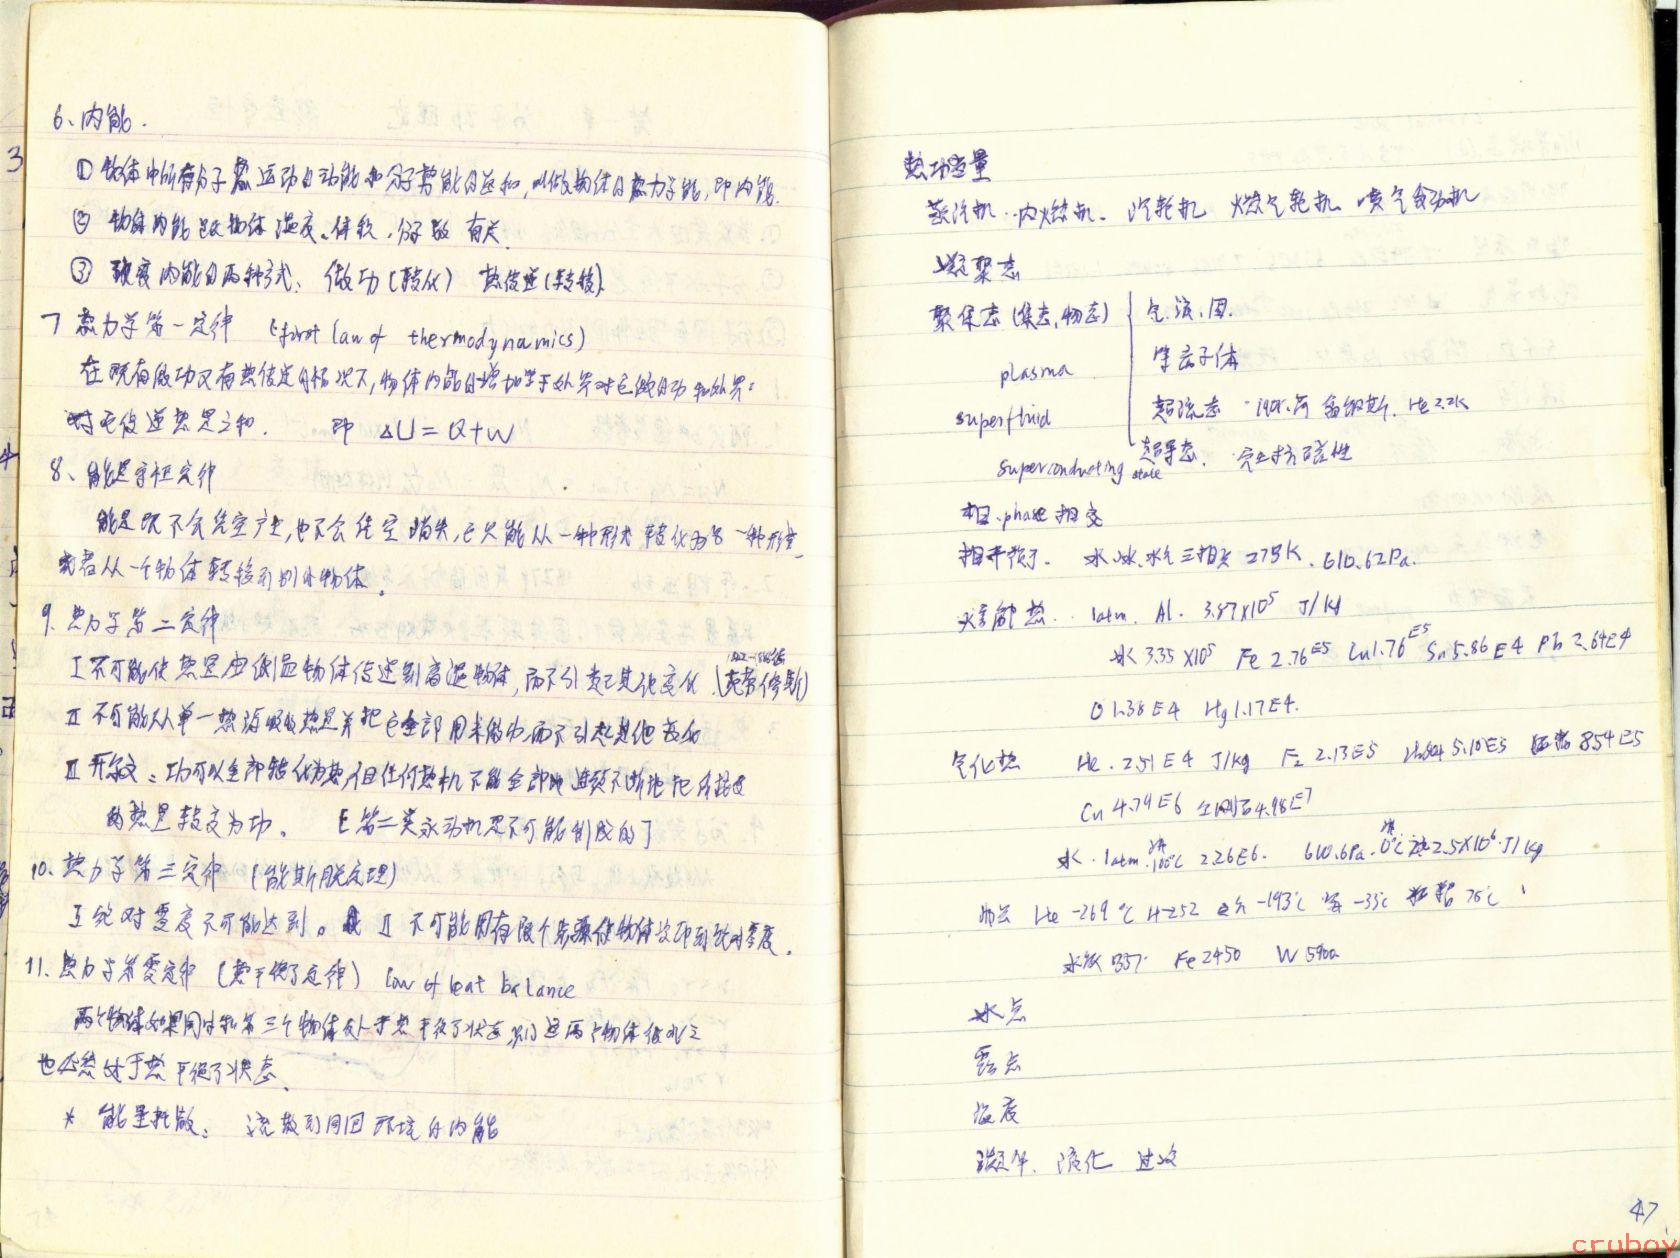 6、内能.
① 物体中所有分子热运动的动能和分子势能的总和,叫做物体的热力学能,即内能.
② 物体内能跟物体温度、体积、分子数 有关.
③ 改变内能的两种形式: 做功(转化) 热传递(转移)
7 热力学第一定律 (first law of thermodynamics)
在既有做功又有热传递的情况下,物体内能的增加等于外界对它做的功和外界
对它传递热量之和. 即 △U=Q+W
8、能量守恒定律
能量既不会凭空产生,也不会凭空消失,它只能从一种形式转化为另一种形式
或者从一个物体转移到别的物体.
9. 热力学第二定律
I 不可能使热量由低温物体传递到高温物体,而不引起其他变化 (克劳修斯)
II 不可能从单一热源吸收热量并把它全部用来做功,而不引起其他变化
III 开尔文:功可以全部转化为热,但任何热机不能全部地连续不断地把所接受
的热量转变为功. [第二类永动机是不可能制成的]
10. 热力学第三定律 (能斯脱定理)
I 绝对零度不可能达到. II 不可能用有限个步骤使物体冷却到绝对零度.
11. 热力学第零定律 (热平衡定律) law of heat balance
两个物体如果同时和第三个物体处于热平衡状态,则这两个物体彼此之
也必然处于热平衡状态.
* 能量耗散: 流散到周围环境的内能
热功当量
蒸汽机 内燃机、汽轮机 燃气轮机 喷气发动机
凝聚态
聚集态(集态,物态) 气.液.固.
plasma 等离子体
superfluid 超流态 He 2.2K
superconducting state 超导态. 完全抗磁性
相.phase 相变
相平衡. 水.冰.水气三相点 273K. 610.62Pa.
熔解热. 1atm. Al. 3.87X10⁵ J/kg
冰 3.35X10⁵ Fe 2.76E5 Cu1.76E5 Sn5.86E4 Pb 2.64E4
O 1.38E4 Hg1.17E4.
气化热 He. 2.51E4 J/kg 2.13E5 5.10E5 8.54E5
Cu 4.79E6 金刚石4.98E7
水.1atm. 100℃ 2.26E6. 610.6Pa. 0℃ 2.5X10⁶ J/kg
沸点 He -269℃ H-252 -193℃ 氨 -33℃ 78℃
水银357 Fe 2450 W 5900
冰点
露点
湿度
液化 过冷
47
crubox